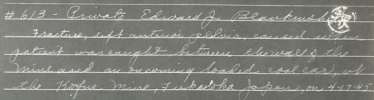 #613 - Private Edward J. Blankenship
Fracture, left anterior pelvis, caused when
patient was caught between the wall of the
mine and an oncoming loaded coal car, at
the mine, Fukuoka Japan, on 4-27-45